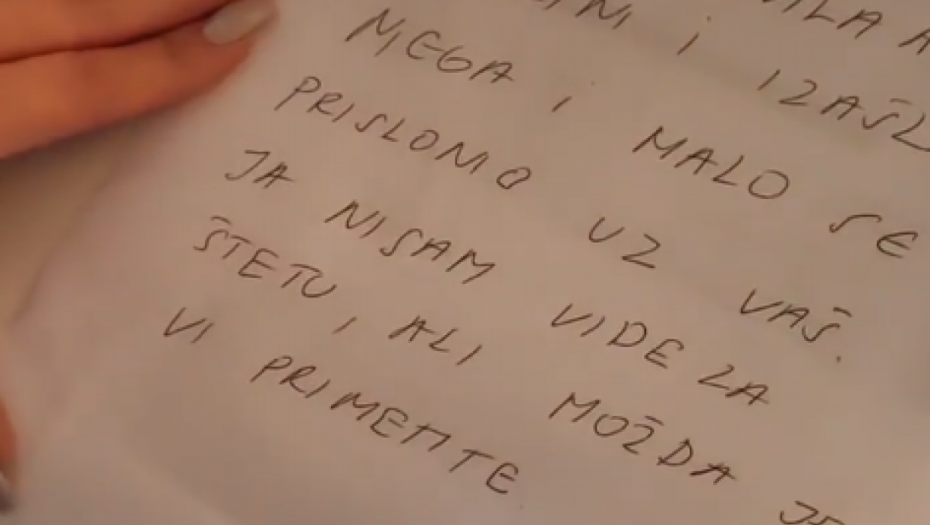 IZAŠL
NJEGA I MALO SE
PRISLONIO UZ VAŠ.
JA NISAM VIDELA
ŠTETU, ALI MOŽDA JE
VI PRIMETITE